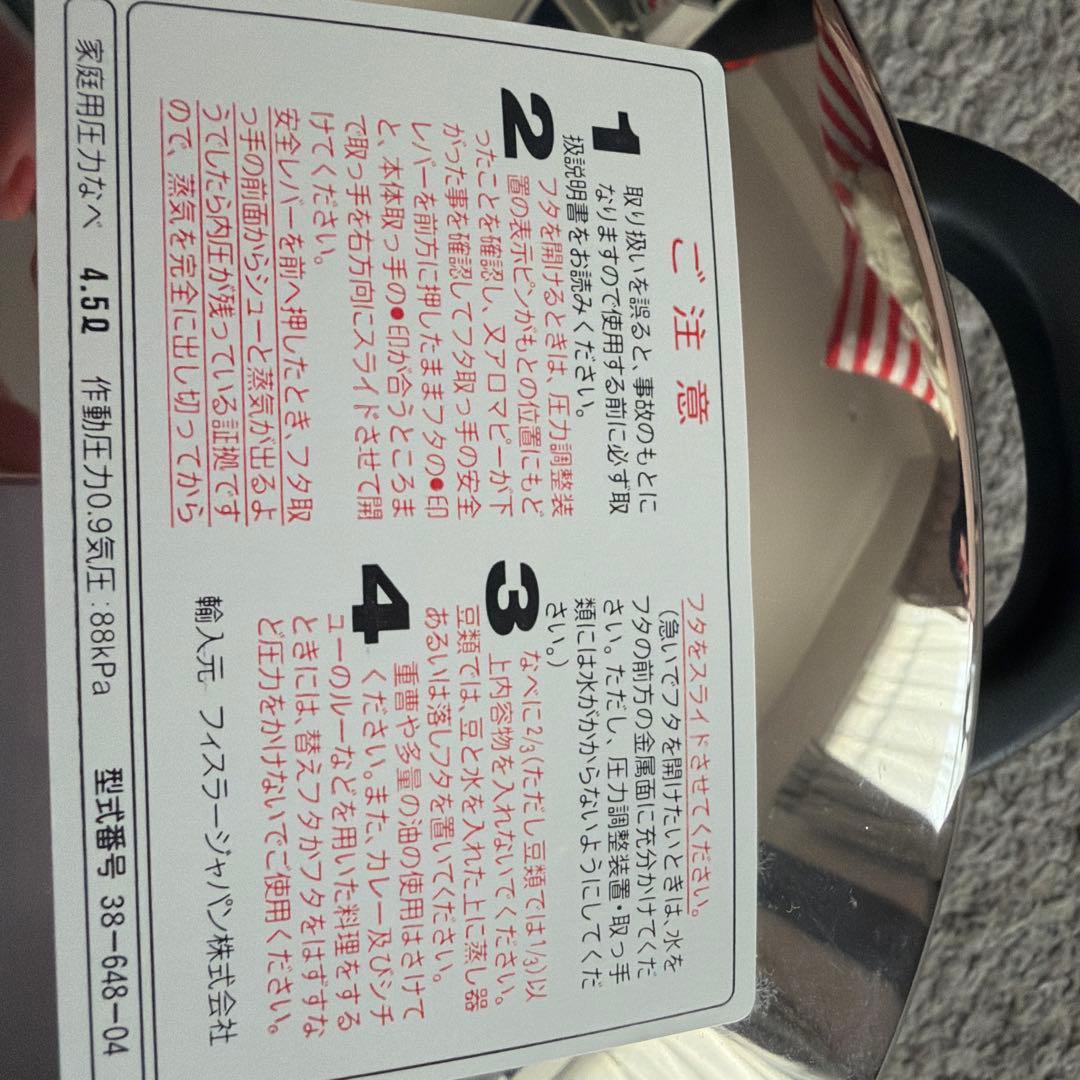 ご注意
1 取り扱いを誤ると、事故のもとに
なりますので使用する前に必ず取
扱説明書をお読みください。
2 フタを開けるときは、圧力調整装
置の表示ピンがもとの位置にもど
ったことを確認し、又アロマピーが下
がった事を確認してフタ取っ手の安全
レバーを前方に押したままフタの●印
と、本体取っ手の●印が合うところま
で取っ手を右方向にスライドさせて開
けてください。
安全レバーを前へ押したとき、フタ取
っ手の前面からシューと蒸気が出るよ
うでしたら内圧が残っている証拠です
ので、蒸気を完全に出し切ってから
フタをスライドさせてください。
(急いでフタを開けたいときは、水を
フタの前方の金属面に充分かけてくだ
さい。ただし、圧力調整装置・取っ手
類には水がかからないようにしてくだ
さい。)
3 なべに2/3(ただし豆類では1/3)以
上内容物を入れないでください。
豆類では、豆と水を入れた上に蒸し器
あるいは落しフタを置いてください。
4 重曹や多量の油の使用はさけて
ください。また、カレー及びシチ
ューのルーなどを用いた料理をする
ときには、替えフタかフタをはずすな
ど圧力をかけないでご使用ください。
輸入元 フィスラージャパン株式会社
家庭用圧力なべ 4.5ℓ 作動圧力0.9気圧:88kPa 型式番号 38-648-04